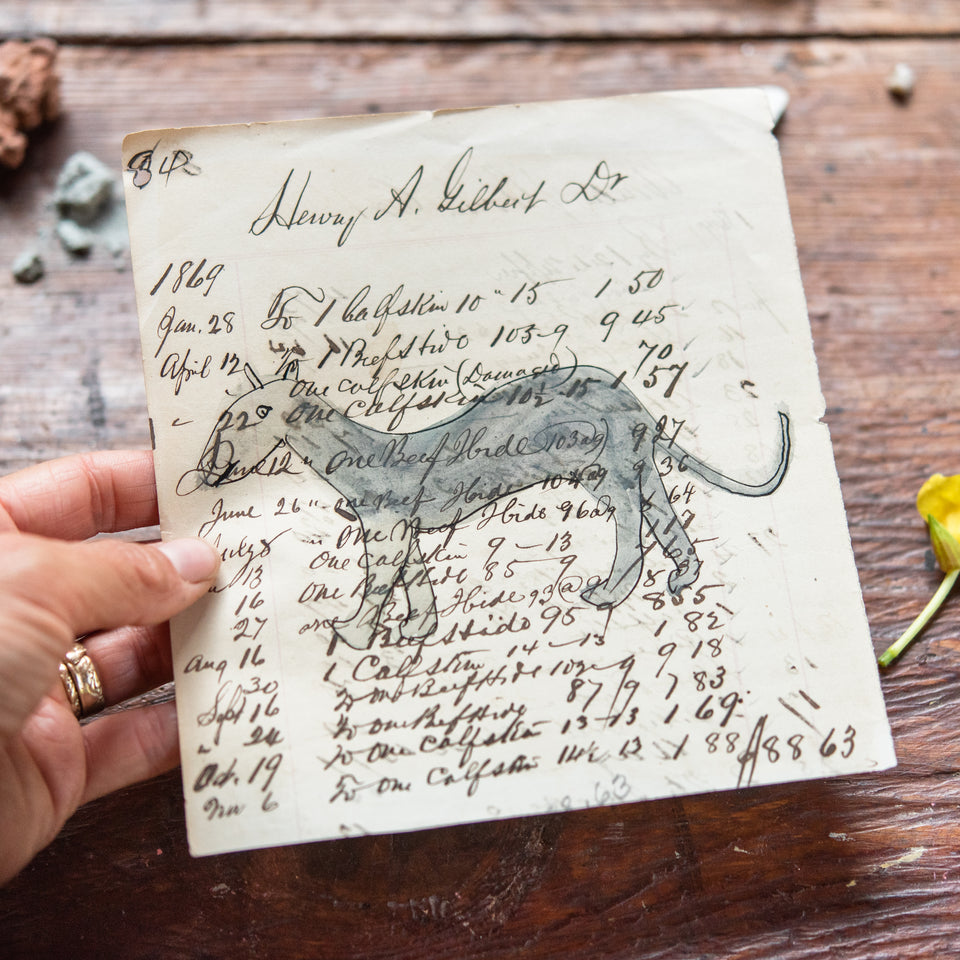 84
Henry A. Gilbert Dr
1869
Jan. 28 To 1 Calfskin 10 " 15 1 50
April 12 To 1 Beef Hide 103-9 9 45
one calfskin (Damaged) 70
" 22 one Calfskin 10½ 15 1 57
June 12 " one Beef Hide 103 @9 9 27
June 26 " one Beef Hide 104 @9 9 36
July 8 " one Beef Hide 96 @9 8 64
" 13 one Calfskin 9 - 13 1 17
16 one Beef Hide 85 - 9 7 65
27 one Beef Hide 93 @ 9 8 37
Aug 16 1 Beef Hide 95 9 8 55
30 1 Calfskin 14 - 13 1 82
Sept 16 To one Beef Hide 102 - 9 9 18
" 24 To one Beef Hide 87 9 7 83
Oct. 19 To one Calfskin 13 - 13 1 69
Nov 6 To one Calfskin 14½ 13 1 88 $88 63